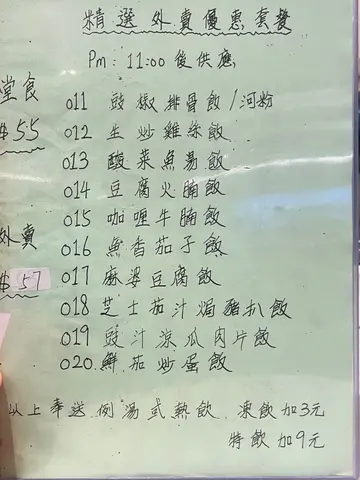 精選外賣優惠套餐
Pm: 11:00後供應
堂食
$55
外賣
$57
011 豉椒排骨飯/河粉
012 生炒雞絲飯
013 酸菜魚湯飯
014 豆腐火腩飯
015 咖喱牛腩飯
016 魚香茄子飯
017 麻婆豆腐飯
018 芝士茄汁焗豬扒飯
019 豉汁涼瓜肉片飯
020. 鮮茄炒蛋飯
以上奉送例湯或熱飲. 凍飲加3元
特飲加9元